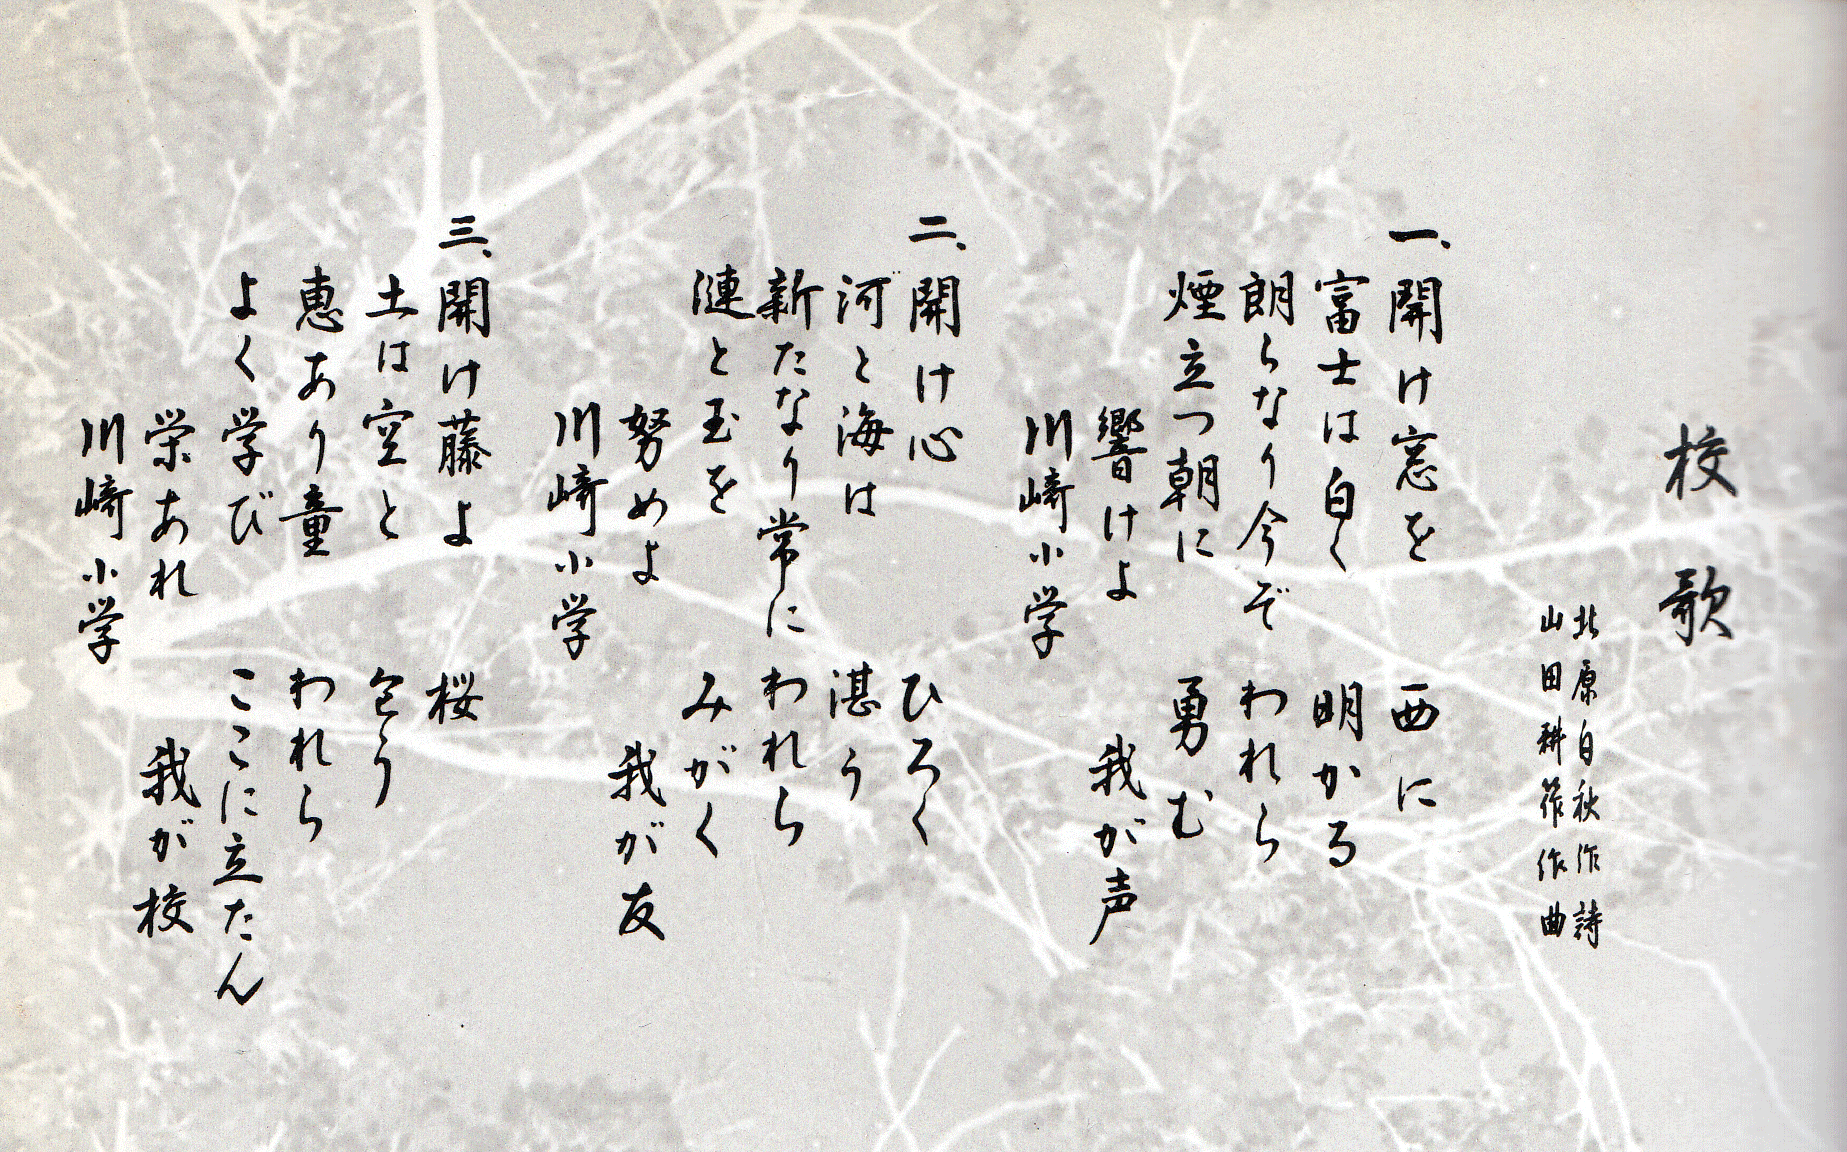 校歌
北原白秋作詩
山田耕筰作曲
一、開け窓を 西に
富士は白く 明かる
朗らなり今ぞ われら
煙立つ朝に 勇む
響けよ 我が声
川崎小学
二、開け心 ひろく
河と海は 湛う
新たなり常に われら
漣と玉を みがく
努めよ 我が友
川崎小学
三、開け藤よ 桜
土は空と 匂う
恵あり童 われら
よく学び ここに立たん
栄あれ 我が校
川崎小学